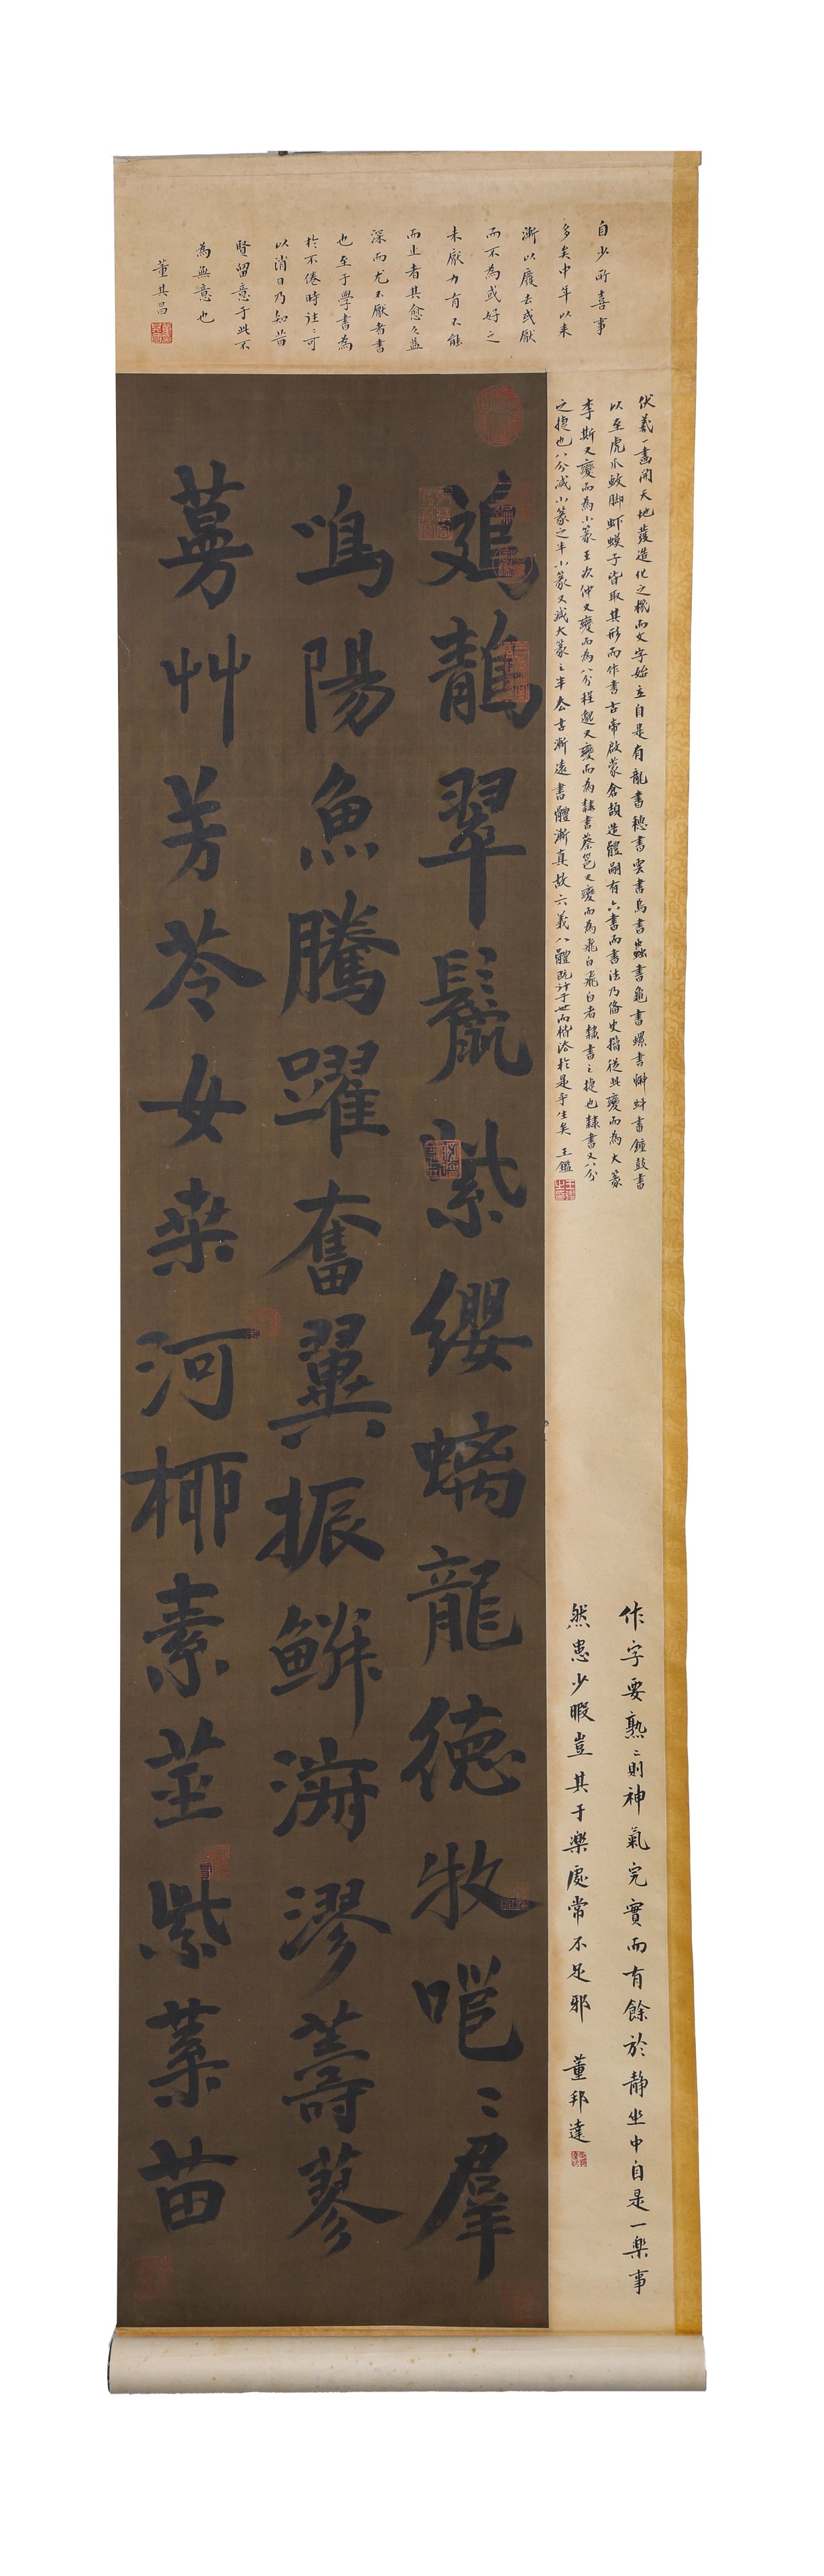 自少所喜事
多矣中年以来
漸以廢去或厭
而不為或好之
未厭力有不能
而止者其愈久益
深而尤不厭者書
也至于學書為
於不倦時往〻可
以消日乃知昔
賢留意于此不
為無意也
董其昌
伏羲一畫開天地發造化之機而文字始立自是有龍書穗書雲書鳥書蟲書龜書螺書蝌蚪書鐘鼓書
以至虎爪蚊脚蝦蟆子皆取其形而作書古帝啟蒙倉頡造體嗣有六書而書法乃備史籀從此變而為大篆
李斯又變而為小篆王次仲又變而為八分程邈又變而為隸書蔡邕又變而為飛白飛白者隸書之捷也隸書又八分
之捷也八分减小篆之半小篆又减大篆之半去古漸遠書體漸真故六義八體既行于世而楷法於是乎生矣 王鑑
作字要熟〻則神氣完實而有餘於静坐中自是一樂事
然患少暇豈其于樂處常不足邪 董邦達
鶄翠鬛紫纓螭龍德牧嗈〻羣
鳴陽魚騰躍奮翼振鱗漻蓼
草芳苓女桑河柳素莖紫葉苗